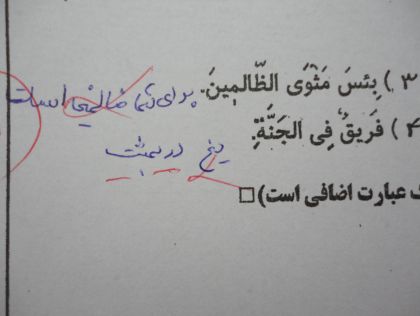 ۳ ) بِئسَ مَثْوَى الظّالِمِینَ. برای شما ظالمین است
۴ ) فَرِیقٌ فِی الجَنَّةِ.
یخ در بهشت
ک عبارت اضافی است) □